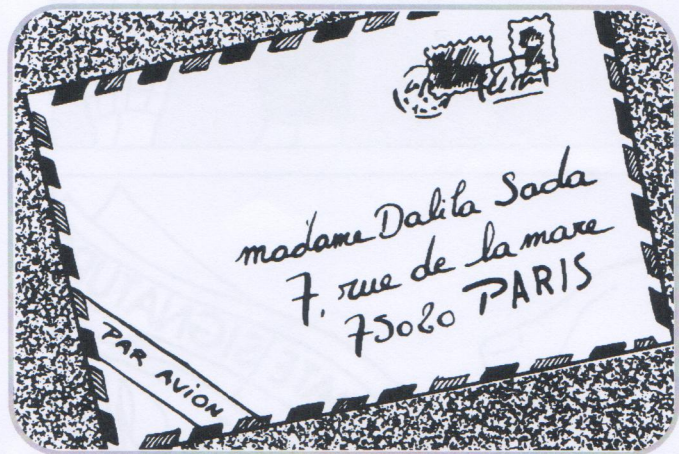 madame Dalila Sada
7, rue de la mare
75020 PARIS
PAR AVION